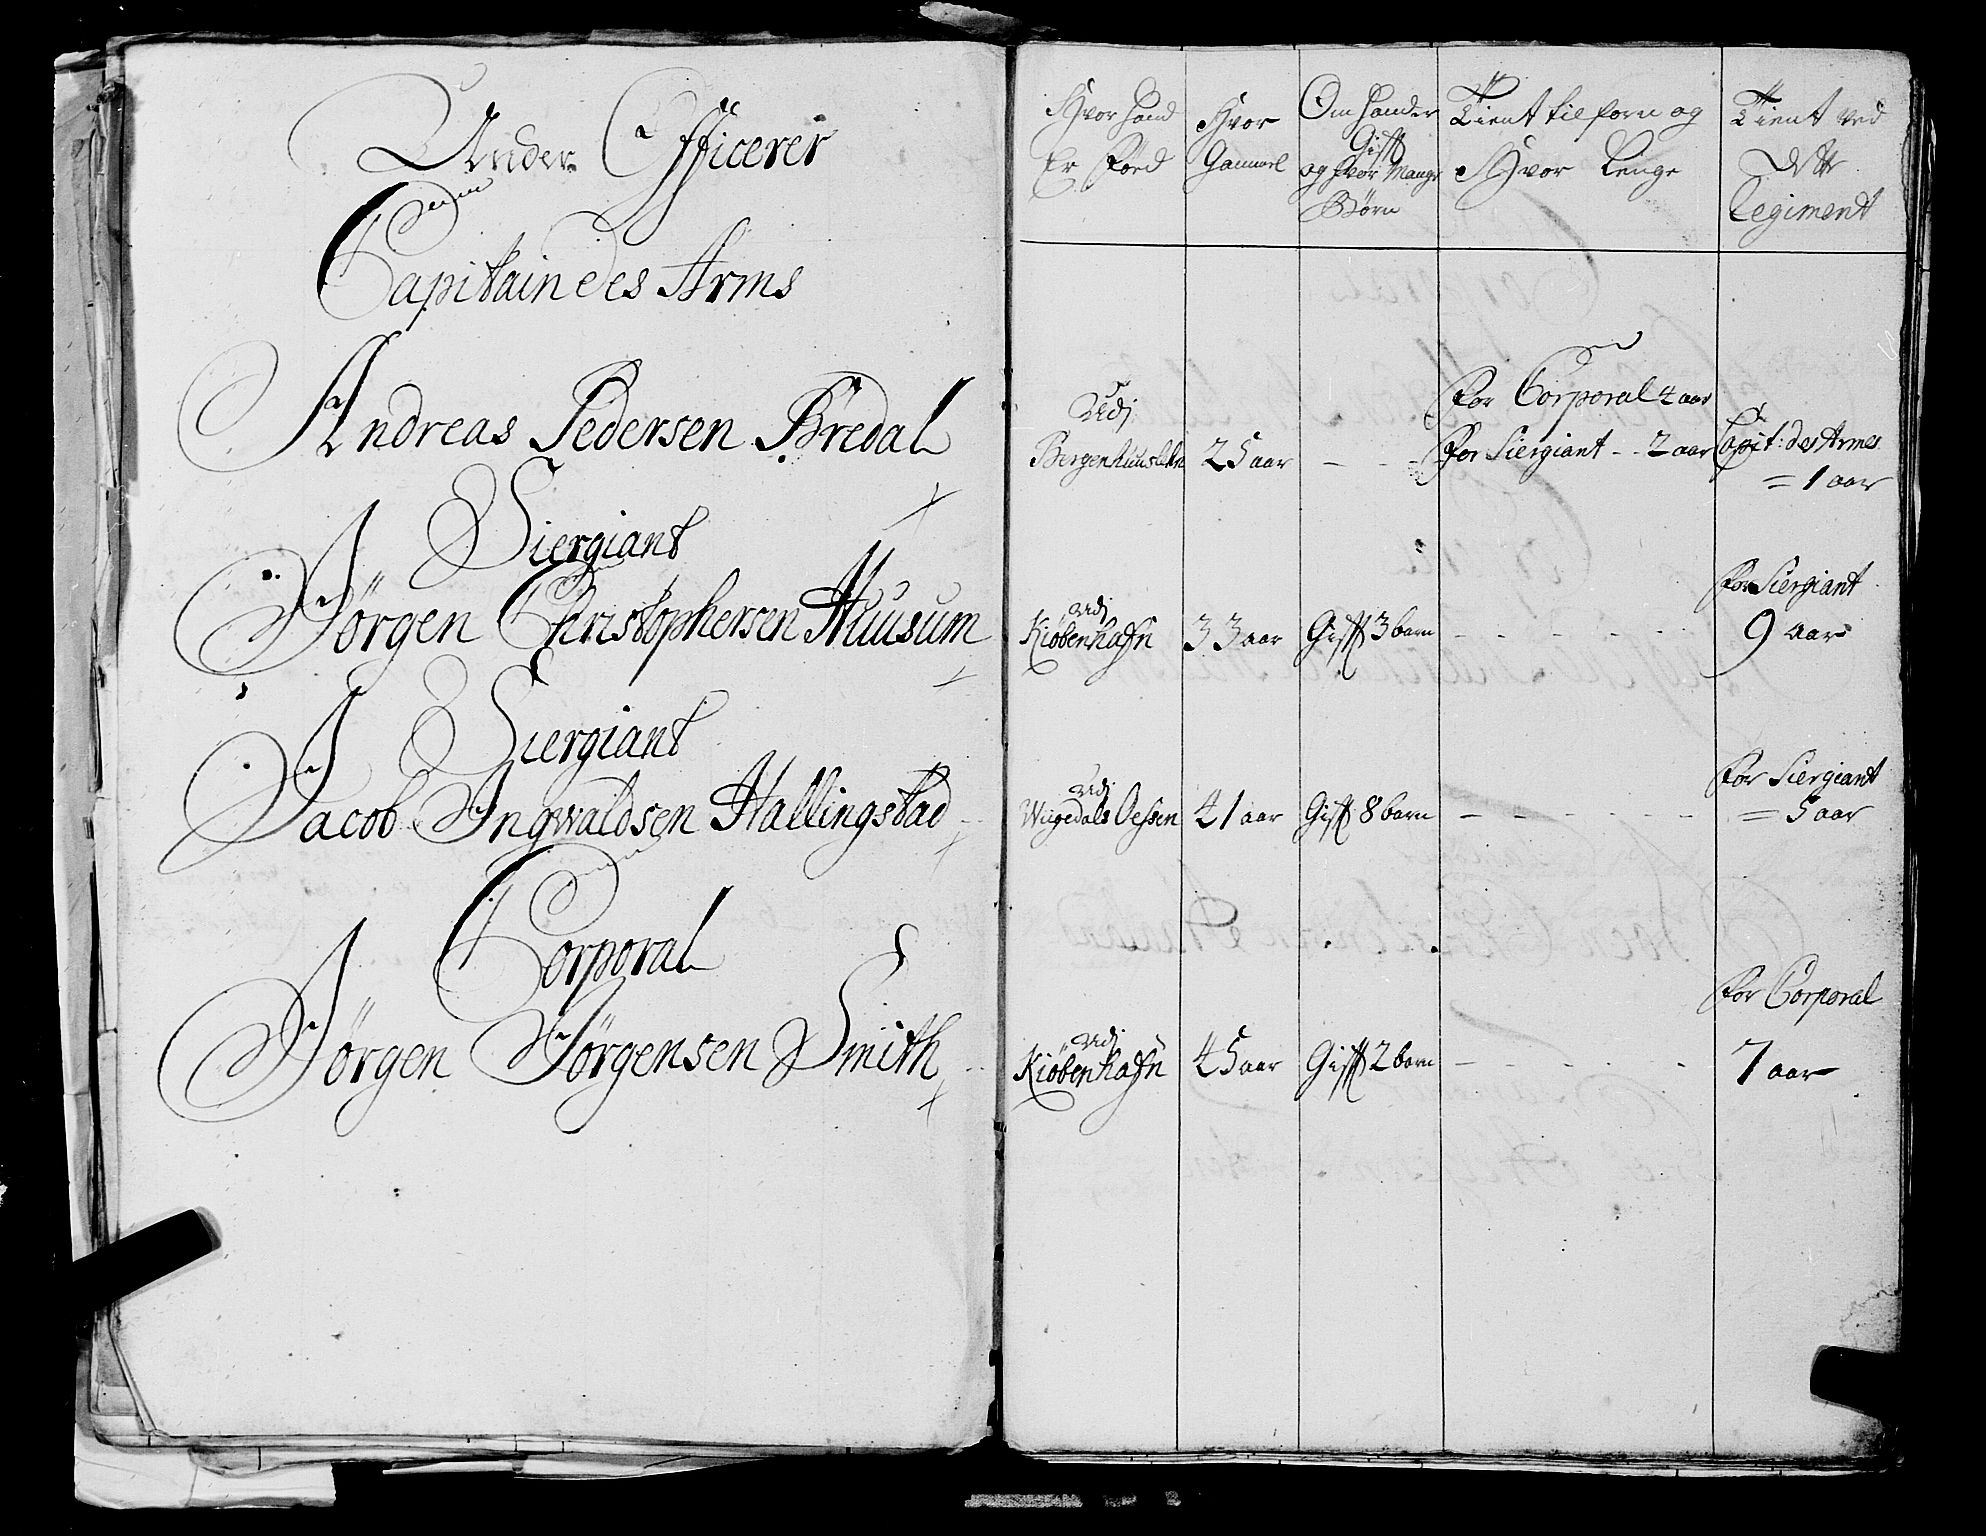 Under Officerer
Capitain des Arms
Andreas Pedersen Bredal
Siergiant
Jörgen Christophersen Huusum
Siergiant
Jacob Ingwaldsen Hallingstad
Corporal
Jörgen Jörgensen Smith
Hvor hand
Er Föed
Hvor
Gammel
Om hand er
Gift
og hvor Mange
Börn
Tient tilforn og
Hvor Lenge
Tient ved
Dette
Regiment
Udj
Bergenhuus Lehn
25 aar
For Corporal 4 aar
For Siergiant - - 2 aar
Capit: des Armes
= 1 aar
Udj
Kiöbenhafn
33 aar
Gift 3 barn
For Siergiant
9 aar
Udj
41 aar
Gift 8 barn
For Siergiant
= 5 aar
Udj
Kiöbenhafn
45 aar
Gift 2 barn
For Corporal
7 aar